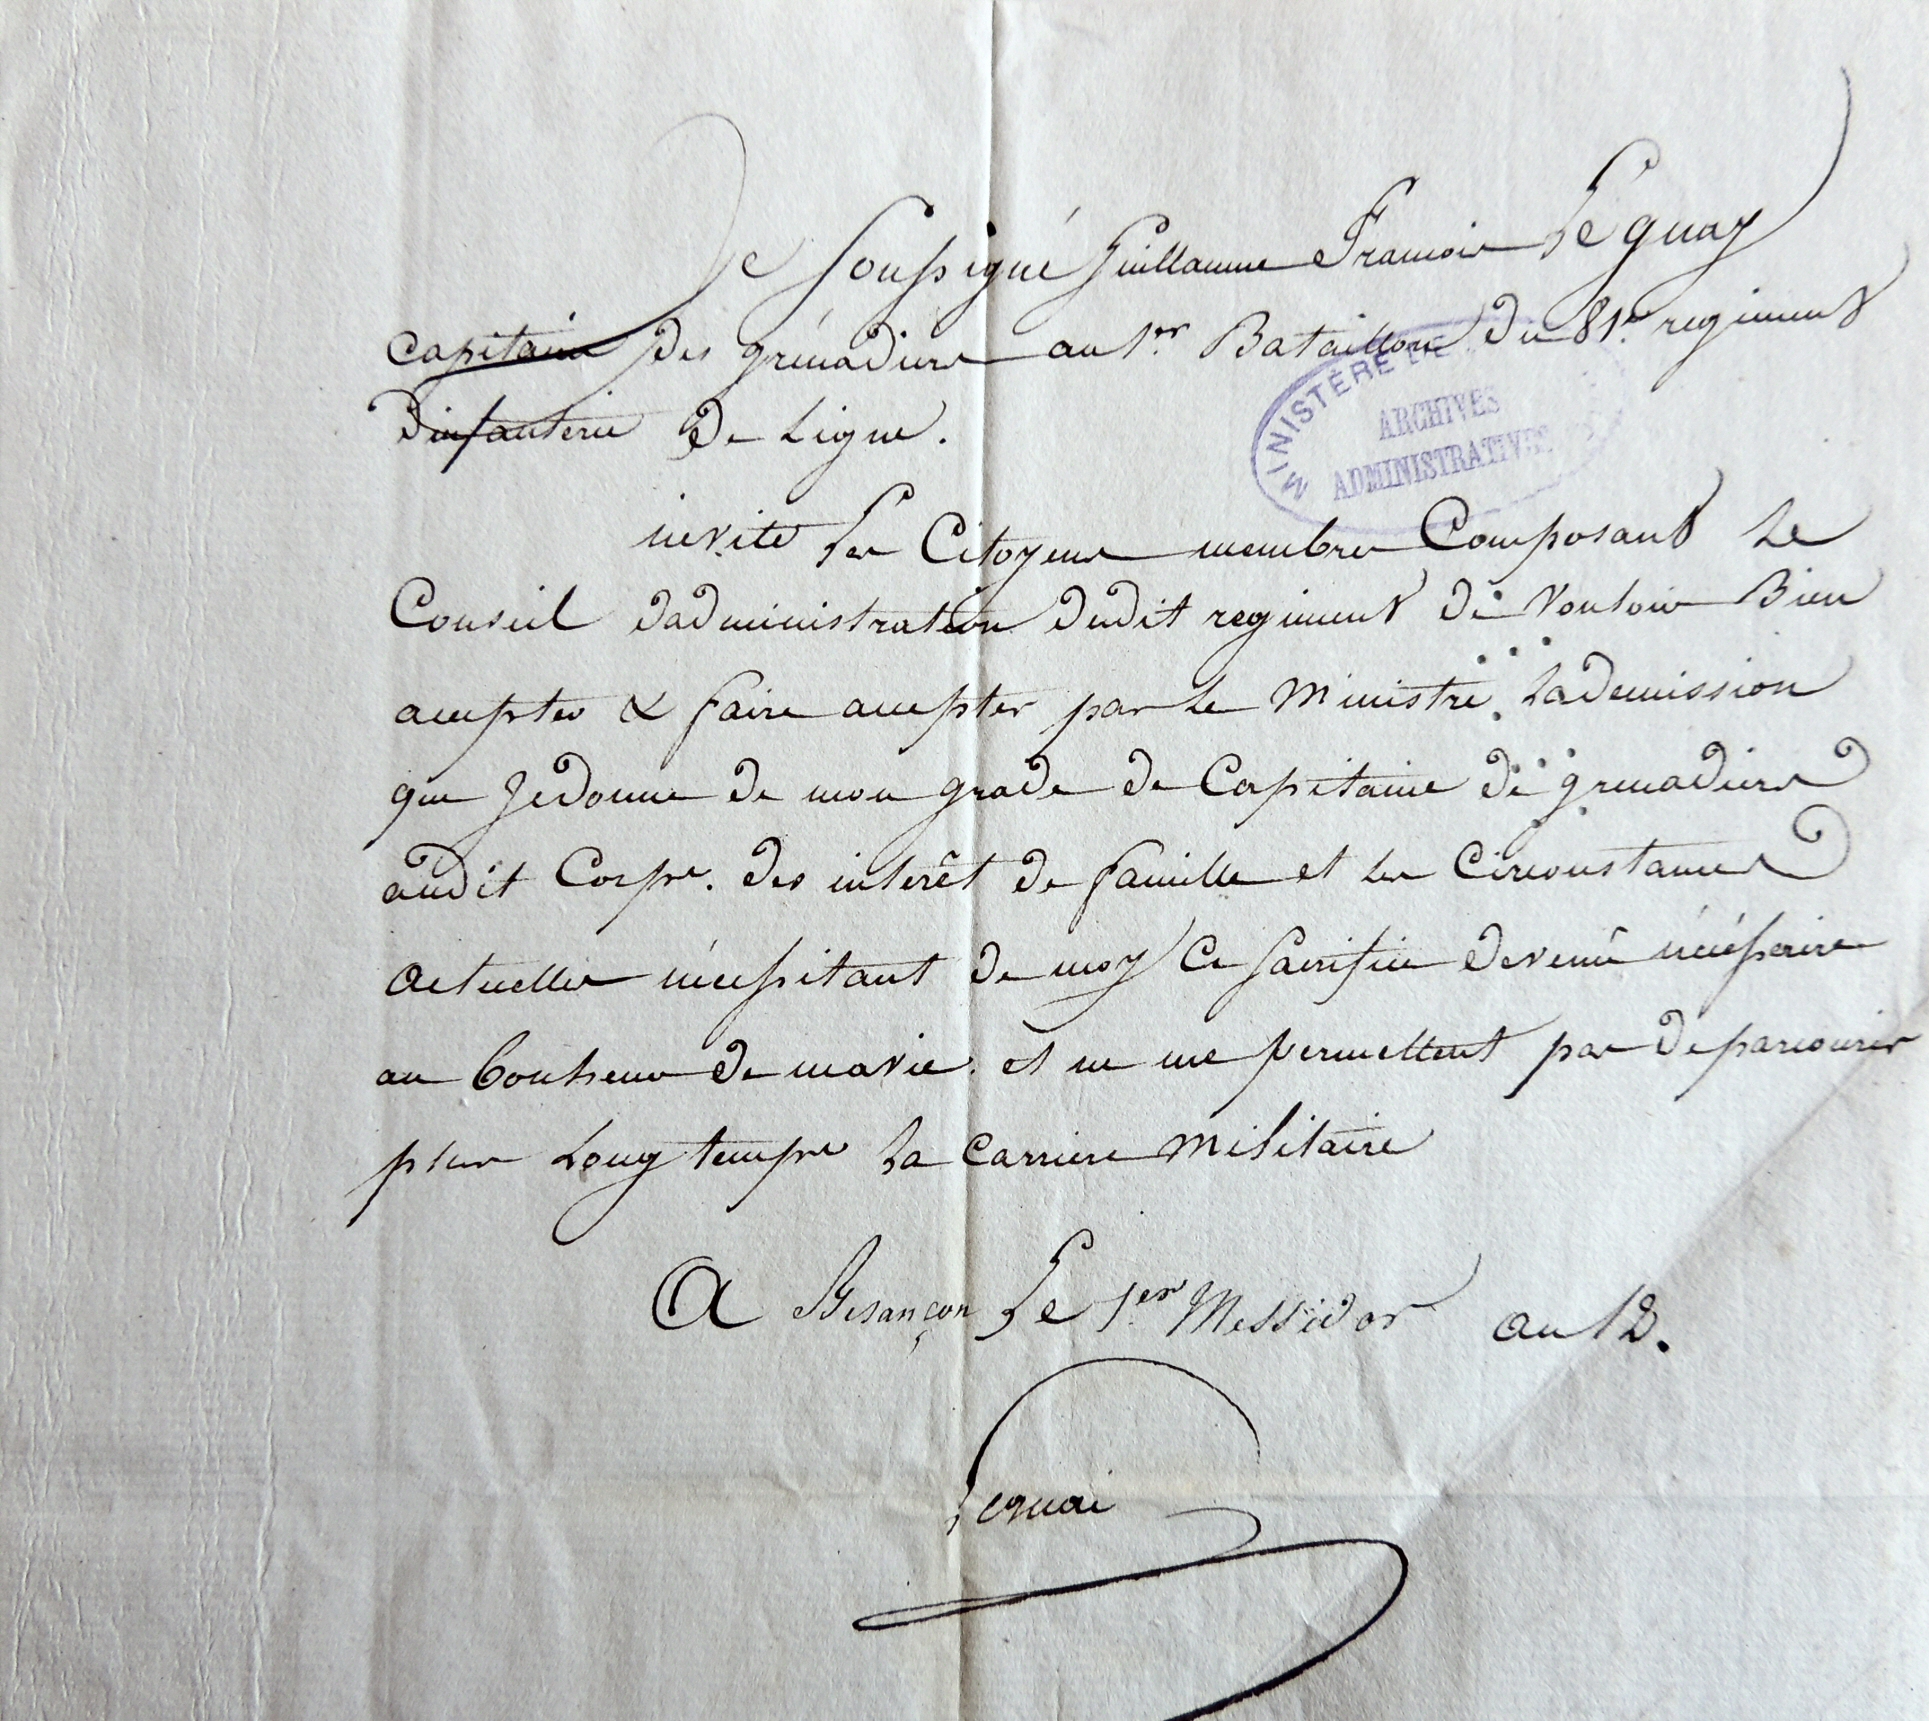 Je soussigné Guillaume François Lequay
capitaine des grénadiers au 1er Bataillon du 81e regiment
dinfanterie de Ligne.
MINISTÈRE DE
ARCHIVES
ADMINISTRATIVES
invite Les Citoyens membres Composant Le
Conseil dadministration dudit regiment de Vouloir Bien
accepter & faire accepter par Le Ministre Lademission
que Jedonne de mon grade de Capitaine de grenadiers
audit Corps. des interêt de famille et Les Circonstances
actuelles nécessitant de moy Ce Sacrifice devenu nécéssaire
au bonheur de mavie. et ne me permettent pas de parcourir
plus Longtemps La Carriere Militaire
A Besançon Le 1er Messidor an 12.
Lequai